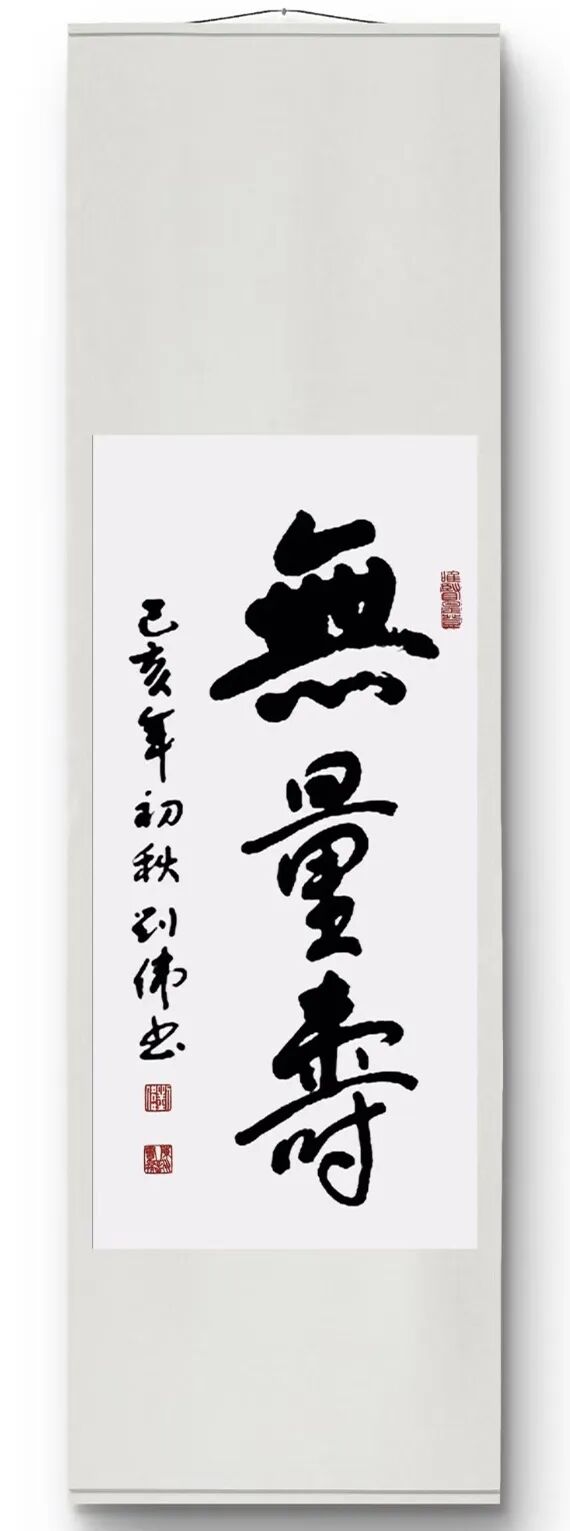 無量壽
己亥年初秋刘伟书